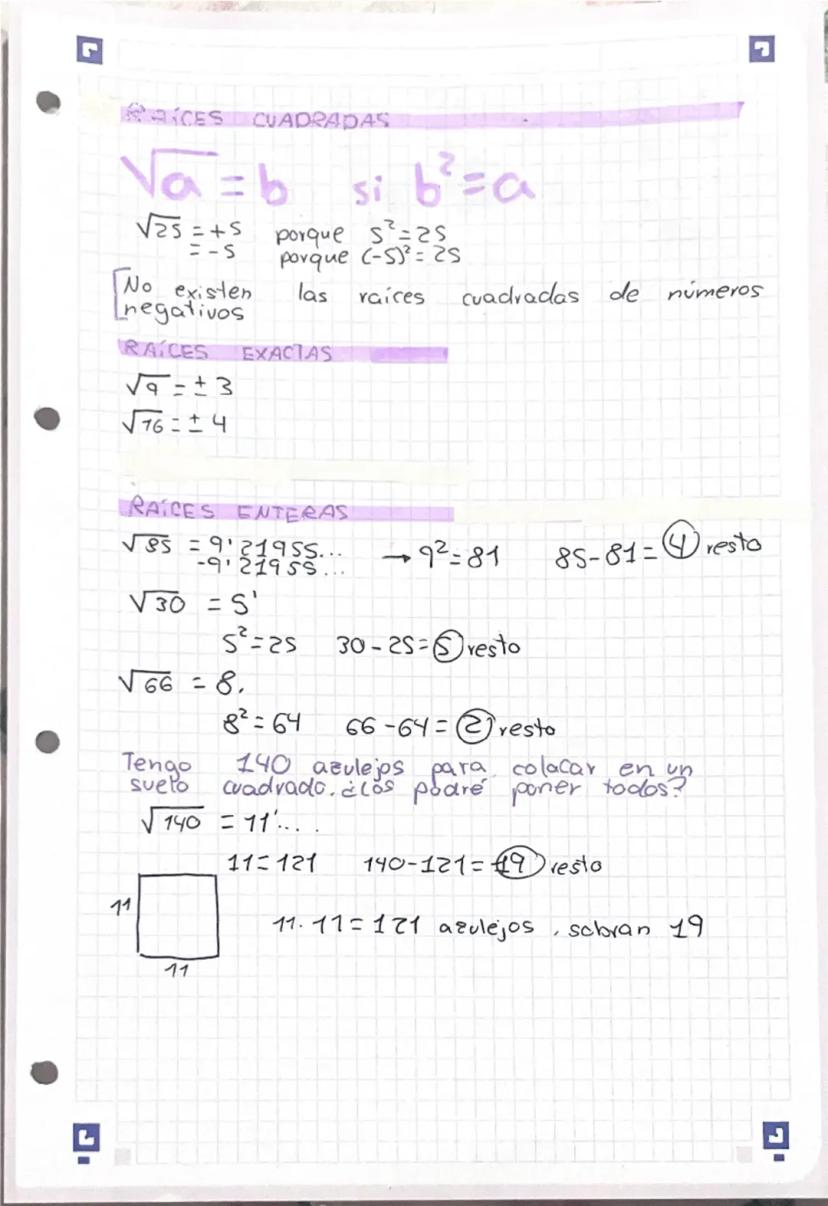 RAÍCES CUADRADAS
√a = b si b² = a
√25 = +5 porque 5² = 25
= -5 porque (-5)² = 25
No existen las raíces cuadradas de números
negativos
RAÍCES EXACTAS
√9 = ± 3
√16 = ± 4
RAÍCES ENTERAS
√85 = 9'21955... → 9² = 81 85-81 = 4 resto
-9'21955...
√30 = 5'
5² = 25 30 - 25 = 5 resto
√66 = 8,
8² = 64 66 - 64 = 2 resto
Tengo 140 azulejos para colacar en un
suelo cuadrado. ¿Los podré poner todos?
√140 = 11'....
11 = 121 140-121 = 19 resto
11
11 · 11 = 121 azulejos, sobran 19
11